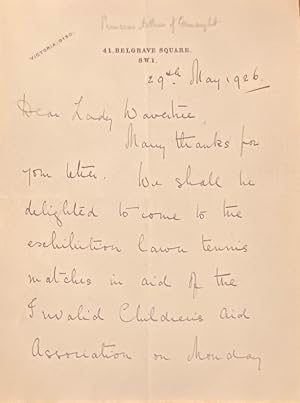 Princess Arthur of Connaught
VICTORIA, 3730.
41, BELGRAVE SQUARE,
S.W.1.
29th May, 1926.
Dear Lady Wavertree,
Many thanks for
your letter. We shall be
delighted to come to the
exhibition lawn tennis
matches in aid of the
Invalid Children's Aid
Association on Monday